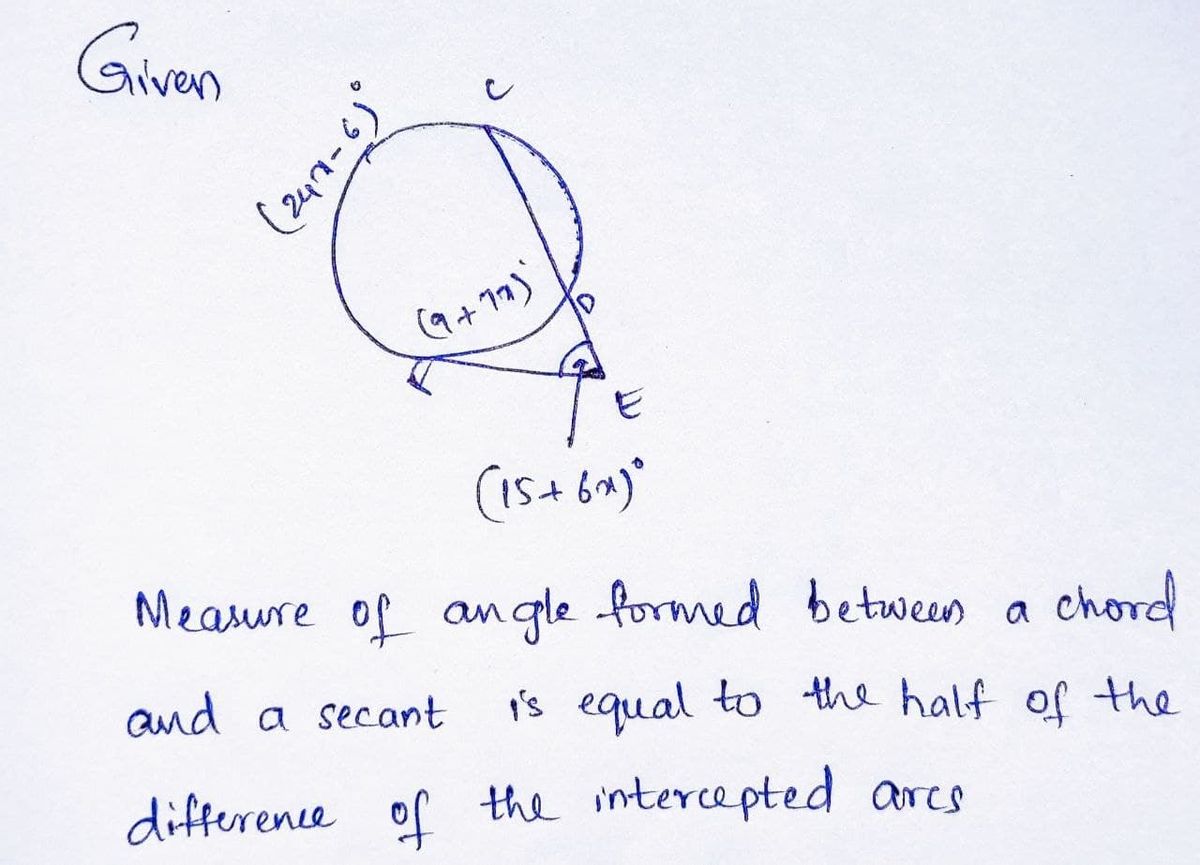 Given
C
(24x-6)°
(9+7x)°
D
F
E
(15+6x)°
Measure of angle formed between a chord
and a secant is equal to the half of the
difference of the intercepted arcs